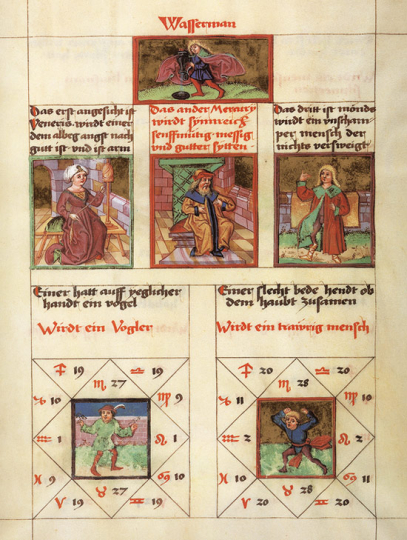 Wasserman
Das erst angesicht ist
Veneris wirdt einer
dem albeg angst nach
gutt ist vnd ist arm
Das ander Mercury
wirdt synnreich
senfftmutig messig
vnd gutter sytten
Das dritt ist mönds
wirdt ein vnscham
per mensch der
nichts versweigt
Einer hatt auff yeglicher
handt ein vogel
Wirdt ein Vogler
Einer slecht bede hendt ob
dem haubt zusamen
Wirdt ein trawrig mensch
♐ 19 ♎ 19
♏ 27
♑ 10 ♍ 9
♒ 1 ♌ 1
♓ 9 ♋ 10
♉ 27
♈ 19 ♊ 19
♐ 20 ♎ 20
♏ 28
♑ 11 ♍ 10
♒ 2 ♌ 2
♓ 10 ♋ 11
♉ 28
♈ 20 ♊ 20